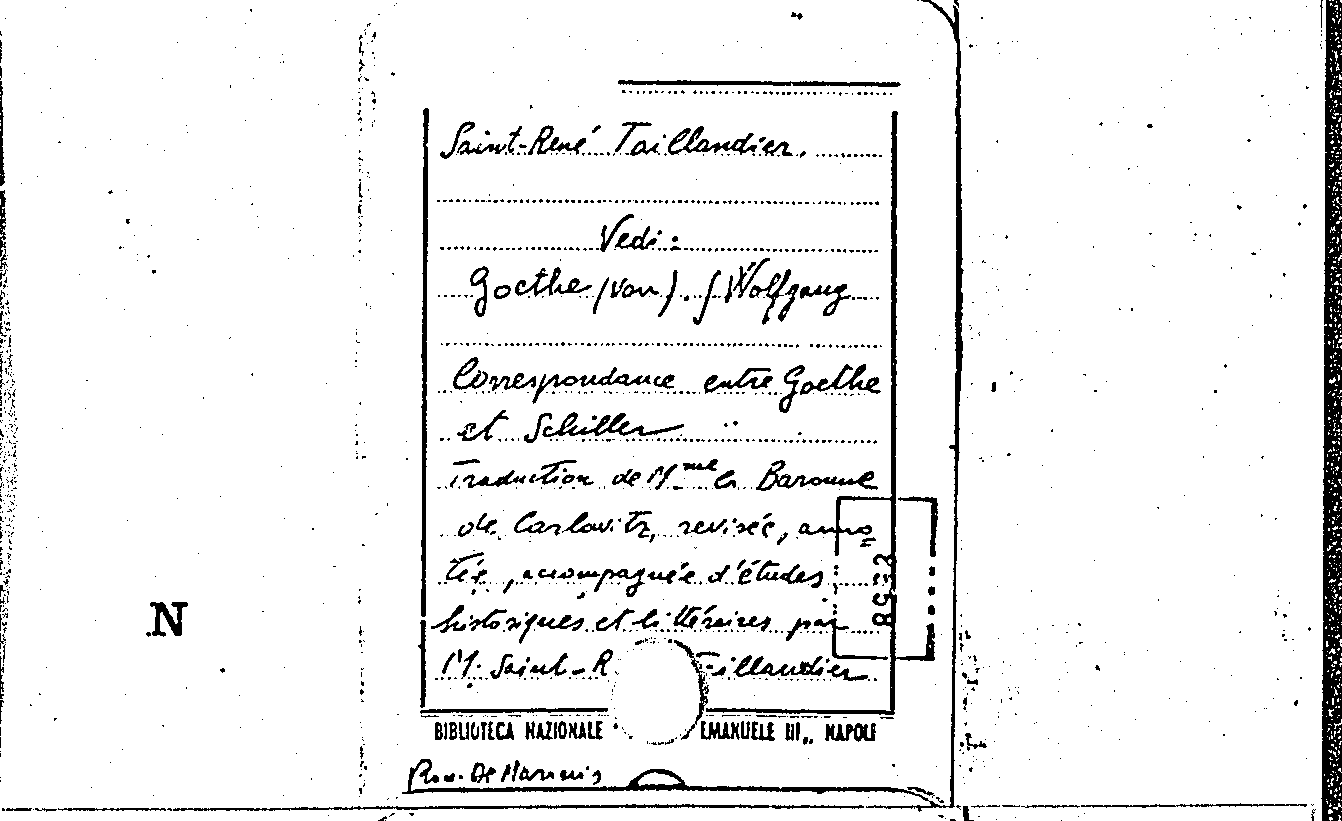 Saint-René Taillandier.
Vedi:
Goethe (von). J Wolfgang
Correspondance entre Goethe
et Schiller
Traduction de Mme la Baronne
de Carlovitz, revisée, anno=
tée, accompagnée d'études
historiques et littéraires par
M. Saint-R Taillandier
BIBLIOTECA NAZIONALE EMANUELE III„ NAPOLI
N